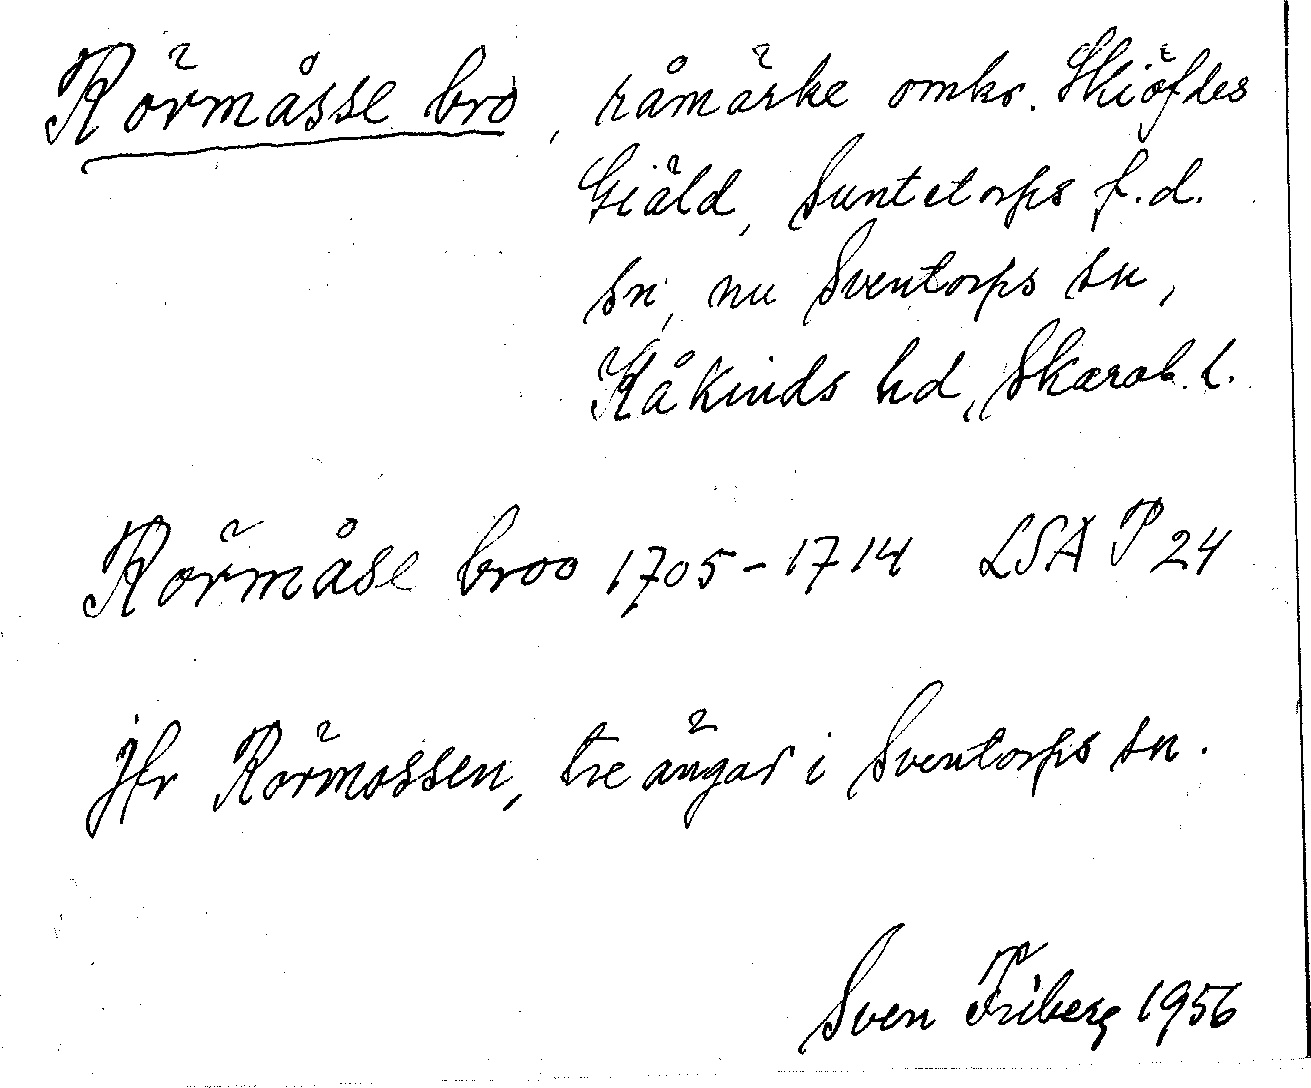 Rörmåsse bro, råmärke omkr. Skiöfdes
Giäld, Suntetorps f.d.
sn, nu Sventorps sn,
Kåkinds hd, Skarab. l.
Rörmåse broo 1705-1714 LSA P 24
Jfr Rörmossen, tre ängar i Sventorps sn.
Sven Friberg 1956